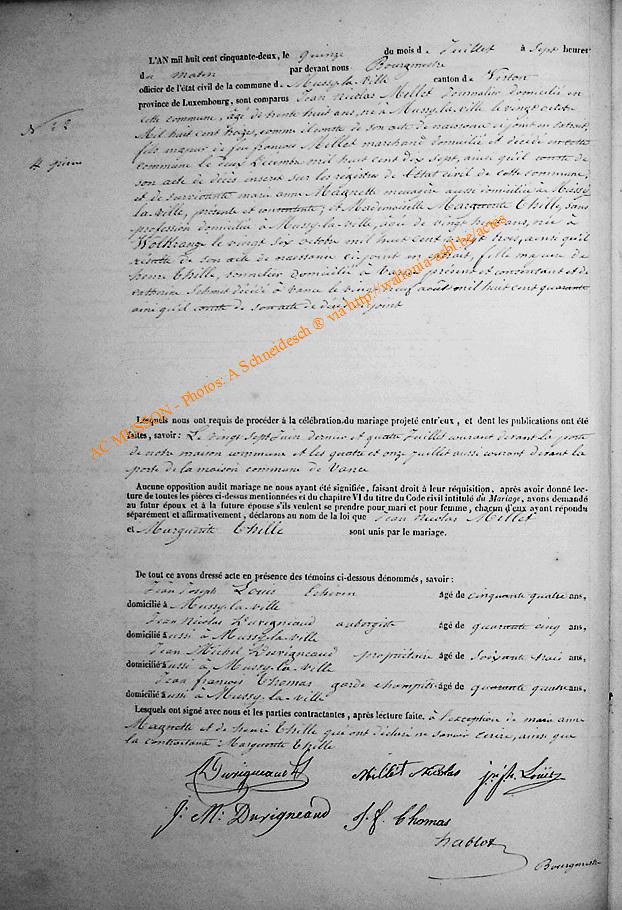 L'AN mil huit cent cinquante-deux, le quinze du mois de Juillet à sept heures
du matin par devant nous Bourgmestre
officier de l'état civil de la commune de Mussy-la-Ville canton de Virton
province de Luxembourg, sont comparus Jean Nicolas Millet Journalier domicilié en
cette commune, âgé de trente huit ans, né à Mussy-la-ville le vingt octobre
Mil huit cent treize, comme il conste de son acte de naissance ci joint en extrait,
N° 22
fils majeur de feu françois Millet marchand domicilié et décédé en cette
4 pièces
commune le deux Décembre mil huit cent dix sept, ainsi qu'il conste de
son acte de décès inséré sur les registres de l'Etat civil de cette commune,
et de survivante marie anne Magnette ménagère aussi domiciliée à Mussy
la-ville, présente et consentante; et Mademoiselle Marguerite Thille, sans
profession domiciliée à Mussy-la-ville, âgée de vingt huit ans, née à
Wolkrange le vingt six octobre mil huit cent vingt trois, ainsi qu'il
conste de son acte de naissance ci joint en extrait, fille majeure de
henri Thille, domicilié à Vance présent et consentant et de
catherine Schmit décédée à Vance le vingt août mil huit cent quarante
ainsi qu'il conste de son acte de décès ci joint
Lesquels nous ont requis de procéder à la célébration du mariage projeté entr'eux, et dont les publications ont été
faites, savoir: Le vingt sept Juin dernier et quatre Juillet courant devant la porte
de notre maison commune et les quatre et onze Juillet aussi courant devant la
porte de la maison commune de Vance
Aucune opposition audit mariage ne nous ayant été signifiée, faisant droit à leur réquisition, après avoir donné lec-
ture de toutes les pièces ci-dessus mentionnées et du chapitre VI du titre du Code civil intitulé du Mariage, avons demandé
au futur époux et à la future épouse s'ils veulent se prendre pour mari et pour femme, chacun d'eux ayant répondu
séparément et affirmativement, déclarons au nom de la loi que Jean Nicolas Millet
et Marguerite Thille sont unis par le mariage.
De tout ce avons dressé acte en présence des témoins ci-dessous dénommés, savoir:
Jean Joseph Louis Echevin âgé de cinquante quatre ans,
domicilié à Mussy-la-ville
Jean Nicolas Duvigneaud aubergiste âgé de quarante cinq ans,
domicilié aussi à Mussy-la-ville
Jean Michel Duvigneaud propriétaire âgé de soixante trois ans,
domicilié aussi à Mussy-la-ville
Jean françois Thomas garde champêtre âgé de quarante quatre ans,
domicilié aussi à Mussy-la-ville
Lesquels ont signé avec nous et les parties contractantes, après lecture faite. à l'exception de marie anne
Magnette et de henri Thille qui ont déclaré ne savoir écrire, ainsi que
la contractante Marguerite Thille
Duvigneaud Millet Nicolas Jph. Louis
J. M. Duvigneaud J. f. Thomas
hablot
Bourgmestre
AC MUSSON - Photos: A Schneidesch ® via http://wallonia-asbl.be/actes